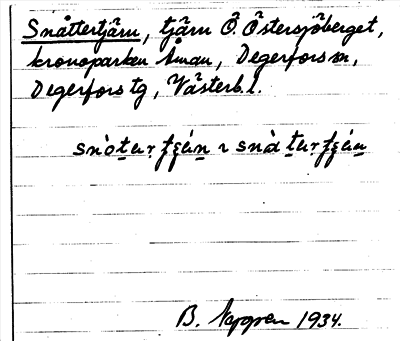 Snåttertjärn, tjärn Ö. Östersjöberget,
kronoparken Åman, Degerfors sn,
Degerfors tg, Västerb. l.
B. Nygren 1934.